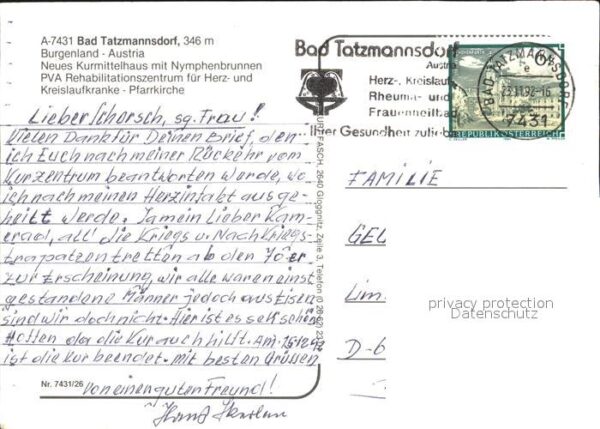 A-7431 Bad Tatzmannsdorf, 346 m
Burgenland - Austria
Neues Kurmittelhaus mit Nymphenbrunnen
PVA Rehabilitationszentrum für Herz- und
Kreislaufkranke - Pfarrkirche
Lieber Schorsch, sg. Frau!
Vielen Dank für Deinen Brief, den
ich Euch nach meiner Rückehr vom
Kurzentrum beantworten werde, wo
ich nach meinen Herzinfakt ausge-
heilt werde. Ja mein Lieber Kam-
erad, all' die Kriegs u. Nachkriegs-
trapatzen tretten ab den 70er
zur Erscheinung, wir alle waren einst
gestandene Männer jedoch aus Eisen
sind wir doch nicht. Hier ist es sehr schön
Hoffen da die Kur auch hilft. Am 15.12.92
ist die Kur beendet. mit besten Grüssen
von einen guten Freund!
Hans
Nr. 7431/26
KURT FASCH, 2640 Gloggnitz, Zeile 3, Telefon
Bad Tatzmannsdorf
Austria
Herz-, Kreislauf
Rheuma- und
Frauenheilbad
Ihrer Gesundheit zuliebe
BAD TATZMANNSDORF
23.11.92-16
7431
REPUBLIK ÖSTERREICH
FAMILIE
GEL
Lim
D-6
privacy protection
Datenschutz